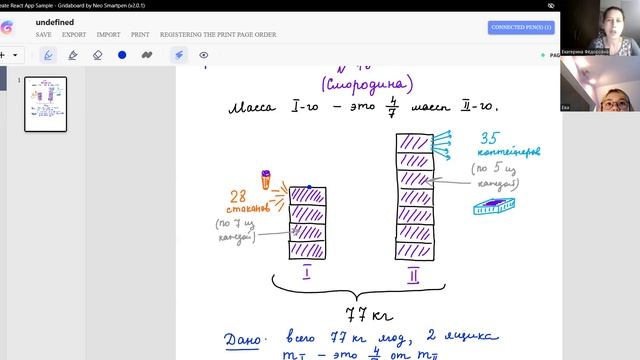 eate React App Sample - Gridaboard by Neo Smartpen (v2.0.1)
undefined
SAVE EXPORT IMPORT PRINT REGISTERING THE PRINT PAGE ORDER
CONNECTED PEN(S) (1)
PAG
Екатерина Фёдоровна
Ева
1
(Смородина)
Масса I-го - это 4/7 массы II-го.
28
стаканов
(по 7 из
каждой)
35
контейнеров
(по 5 из
каждой)
I
II
77 кг
Дано: всего 77 кг ягод, 2 ящика
m I - это 4 от m II